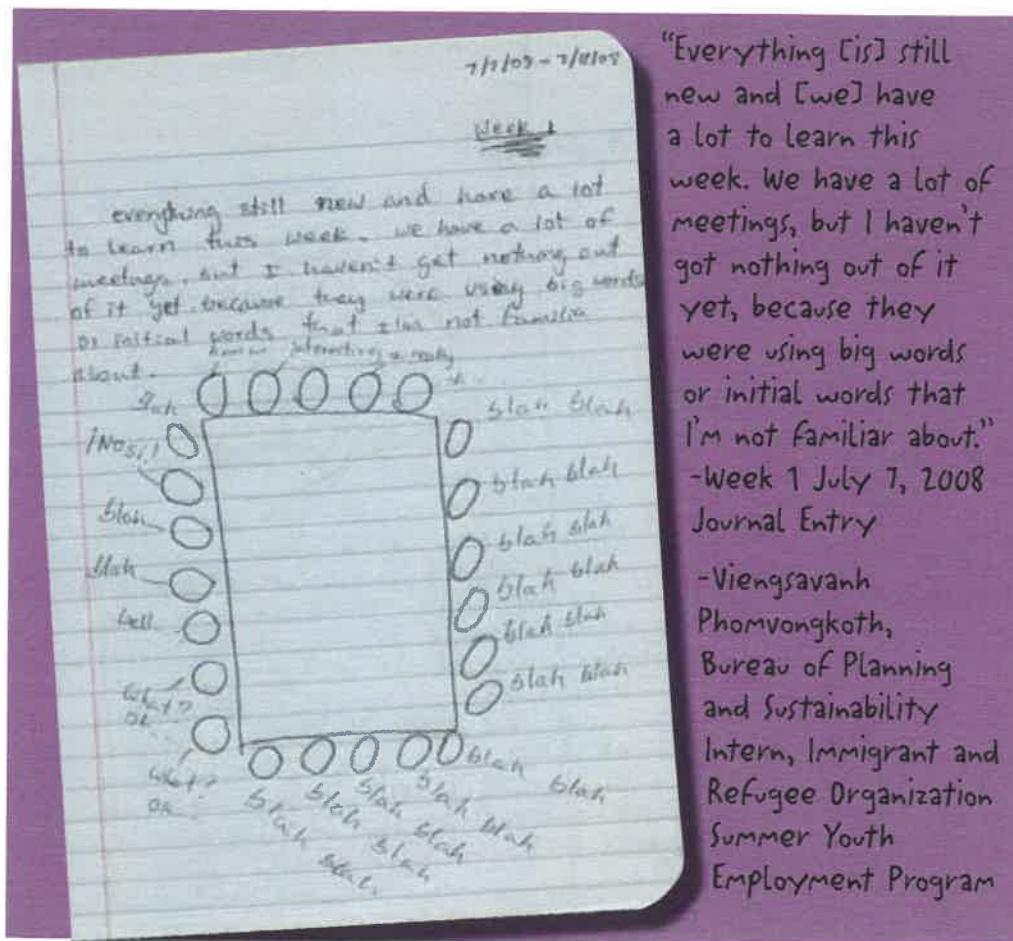 7/7/08 - 7/11/08
Week 1
everything still new and have a lot
to learn this week. we have a lot of
meetings, but I haven't get nothing out
of it yet because they were using big words
or initial words that I'm not familia
about.
interesting
blah blah
blah blah
blah
blah blah
blah
blah blah
well
blah blah
what?
ok..
blah blah
what?
ok.
blah
blah
blah
blah blah
blah blah
blah blah
"Everything [is] still
new and [we] have
a lot to learn this
week. We have a lot of
meetings, but I haven't
got nothing out of it
yet, because they
were using big words
or initial words that
I'm not familiar about."
-Week 1 July 7, 2008
Journal Entry
-Viengsavanh
Phomvongkoth,
Bureau of Planning
and Sustainability
Intern, Immigrant and
Refugee Organization
Summer Youth
Employment Program